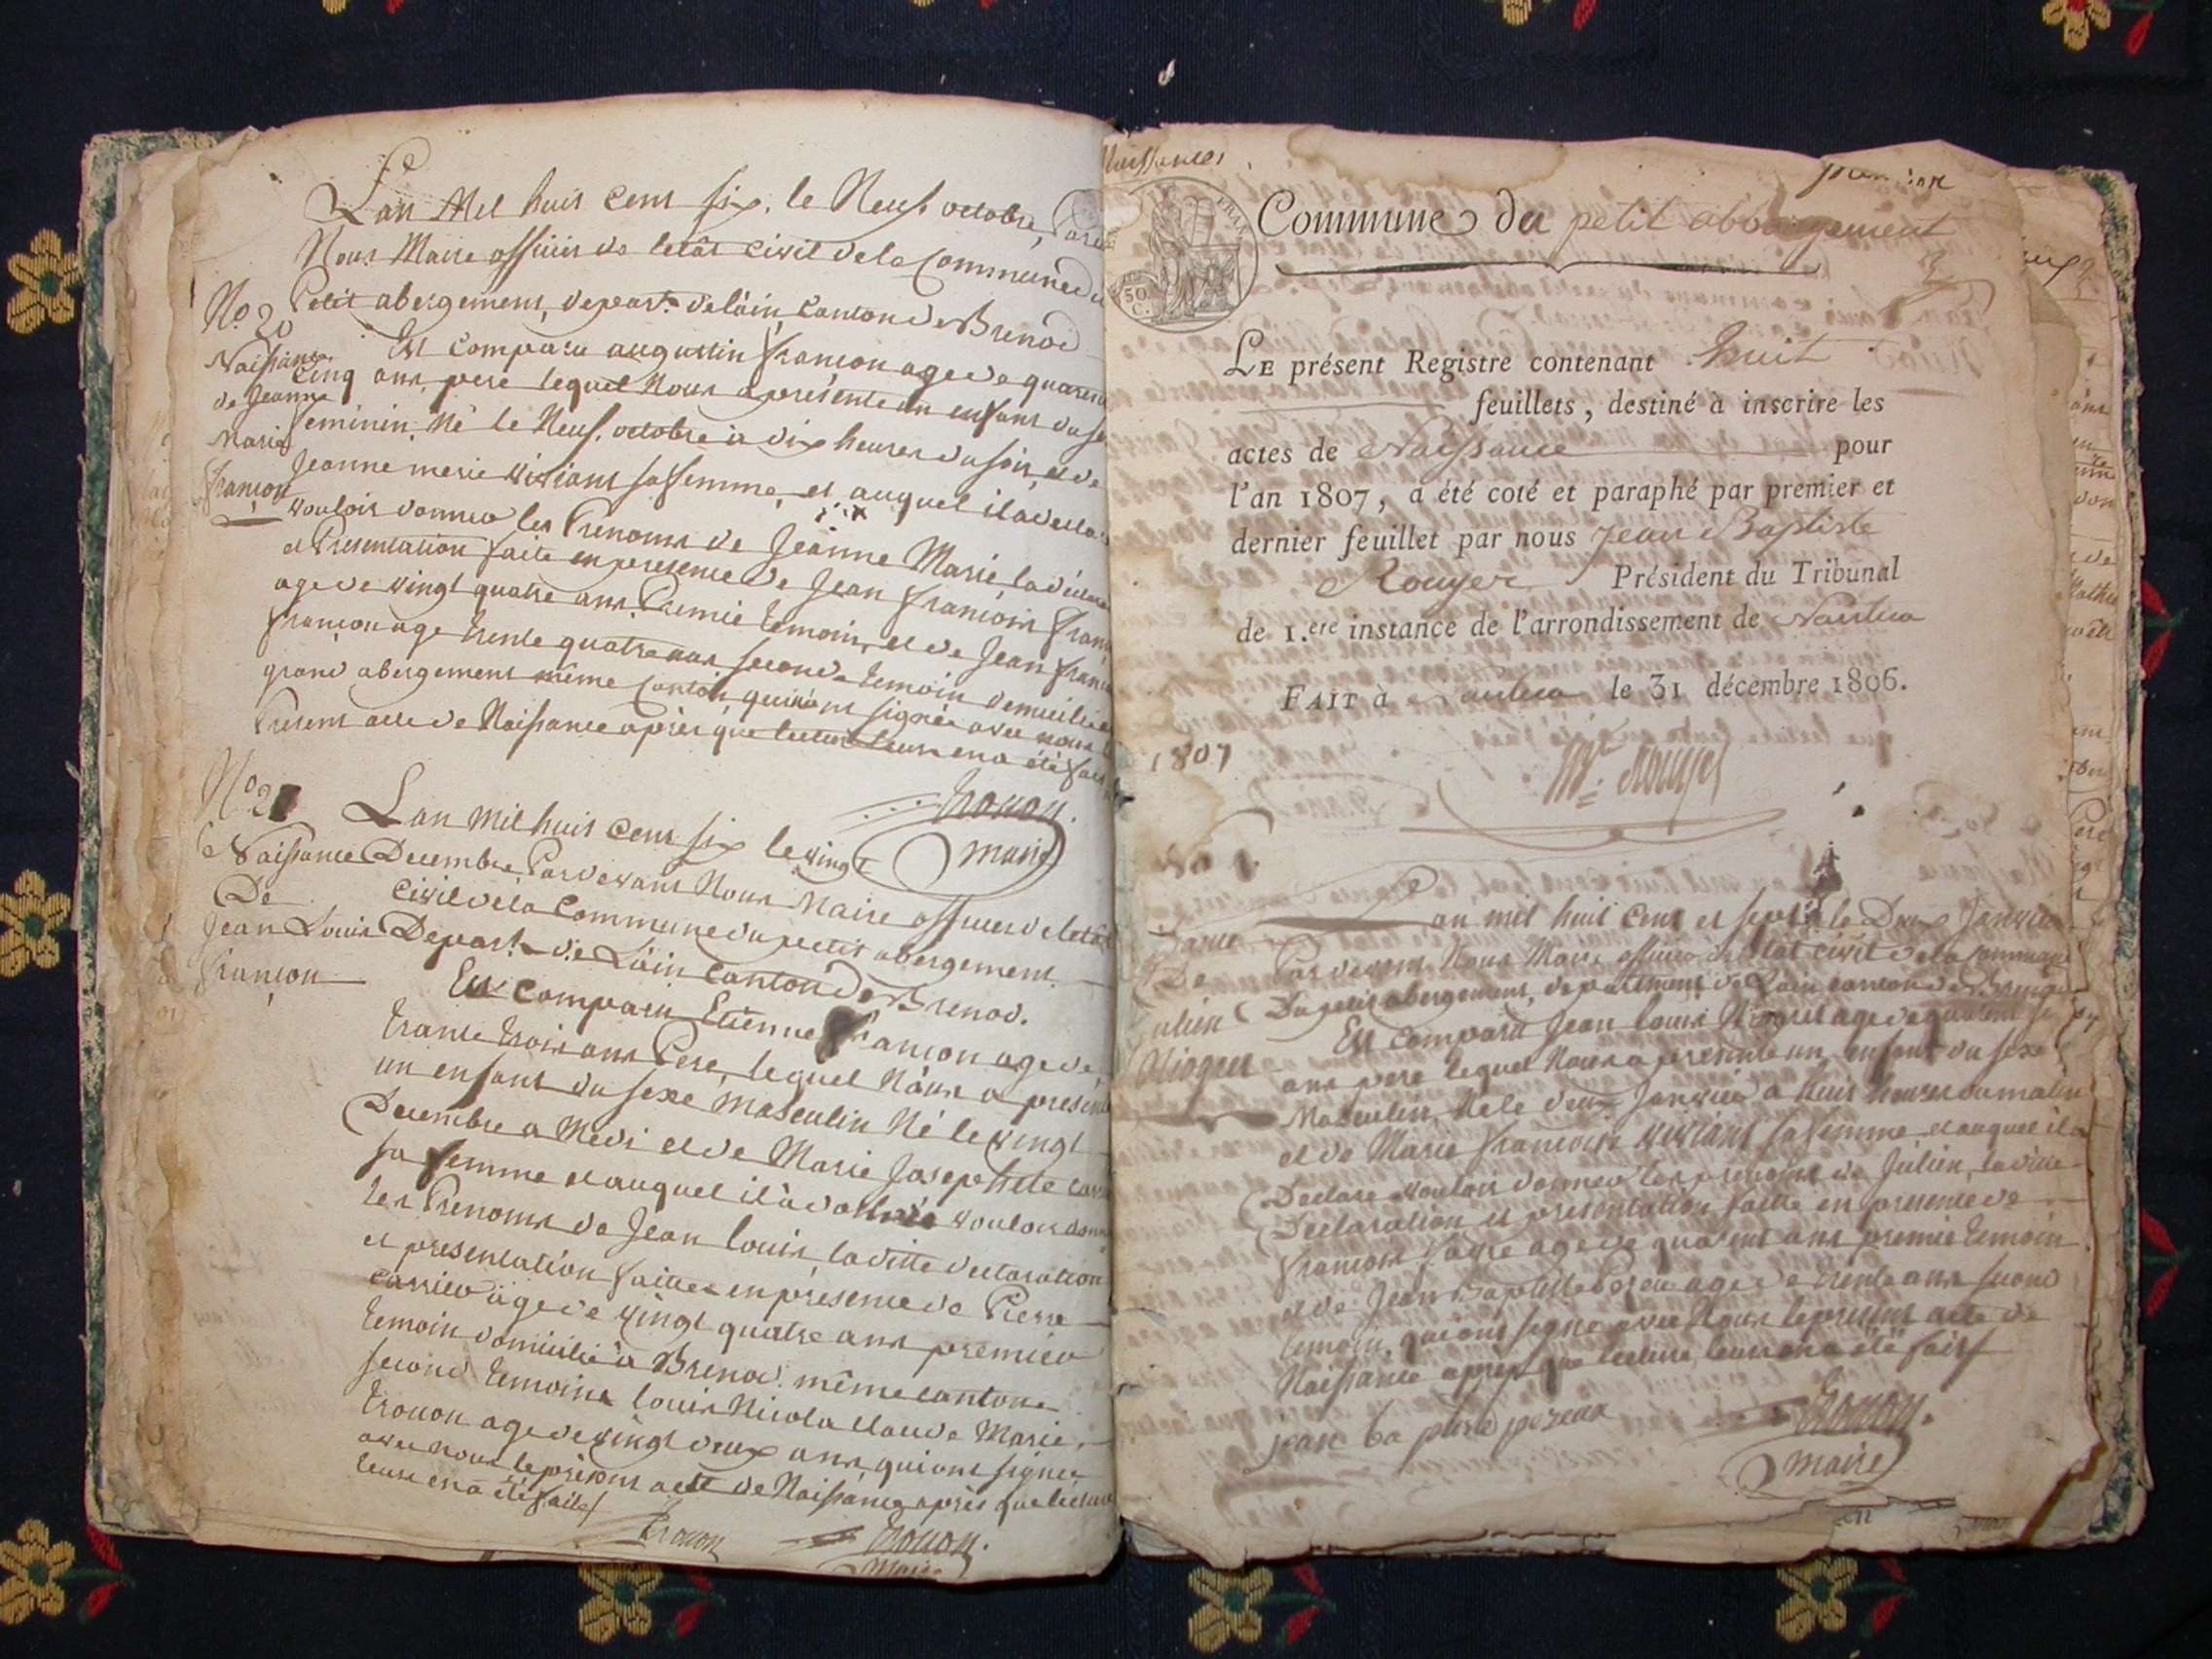 Lan Mil huit cent six, le Neuf octobre, Par
Nous Maire officier de letat civil dela Commune du
Petit abergement, depart. delain, Canton de Brenod
No. 20
Naissance
de Jeanne
Marie
françon
Est comparu augustin françon age de quarente
cinq ans, pere lequel Nous a presenté un enfant du se
feminin, Né le Neuf octobre a dix heures du soir, et de
Jeanne marie viviant sa femme, et auquel il a decla
vouloir donner les Prenoms de Jeanne Marie ladi
et Presentation faite en presence de Jean françois fran
age de vingt quatre ans Premie temoin, et de Jean fran
françon age trente quatre ans second temoin demeu
grand abergement même Canton, qui ont signée avec nous
Present acte de Naissance après que lecture leur en a été fait
tronon.
maire
No. 21
Naissance
De
Jean Louis
françon
Lan mil huit cent six le vingt
Decembre Pardevant Nous Maire officier de letat
civil dela Commune du petit abergement
Depart. de Lain Canton de Brenod.
Est comparu Etienne françon age de
trante trois ans Pere, lequel Nous a presenté
un enfant du sexe masculin Né le vingt
Decembre a Midi et de Marie Josephete
sa femme et auquel il a vouloir donn
les Prenoms de Jean louis, laditte declaration
et presentation faittes en presence de Pierre
carrier age de vingt quatre ans premier
temoin domicilié a Brenod. même canton
second temoins louis Nicola claude Marie
tronon age de vingt deux ans, qui ont signer
avec nous le présent acte de Naissance après que lecture
leure en a été faite
tronon tronon.
Maire
Naissances
premier
Commune du petit abbergement
50
C.
LE présent Registre contenant huit
feuillets, destiné à inscrire les
actes de Naissance pour
l'an 1807, a été coté et paraphé par premier et
dernier feuillet par nous Jean Baptiste
Rouyer Président du Tribunal
de 1.ere instance de l'arrondissement de Nantua
FAIT à Nantua le 31 décembre 1806.
1807
Rouyer
De
ulien
Niogret
an mil huit cent et sept le Deux Janvier
Par devant Nous Maire officier de letat civil dela commune
Du petit abergement, departement de Lain canton de Brenod
Est comparu Jean louis Niogret age de quarente
ans pere lequel Nous a presenté un enfant du sexe
Masculin, Né le deux Janvier a heures du matin
et de Marie françoise viviant sa femme et auquel il a
Declare vouloir donner les prenoms de Julien, laditte
Declaration et presentation faitte en presence de
françois age de quarent ans premier temoin
et de Jean Baptiste age de trente ans second
temoin, qui ont signé avec Nous le present acte de
Naissance après que lecture leur en a été fait
jean ba tronon.
maire